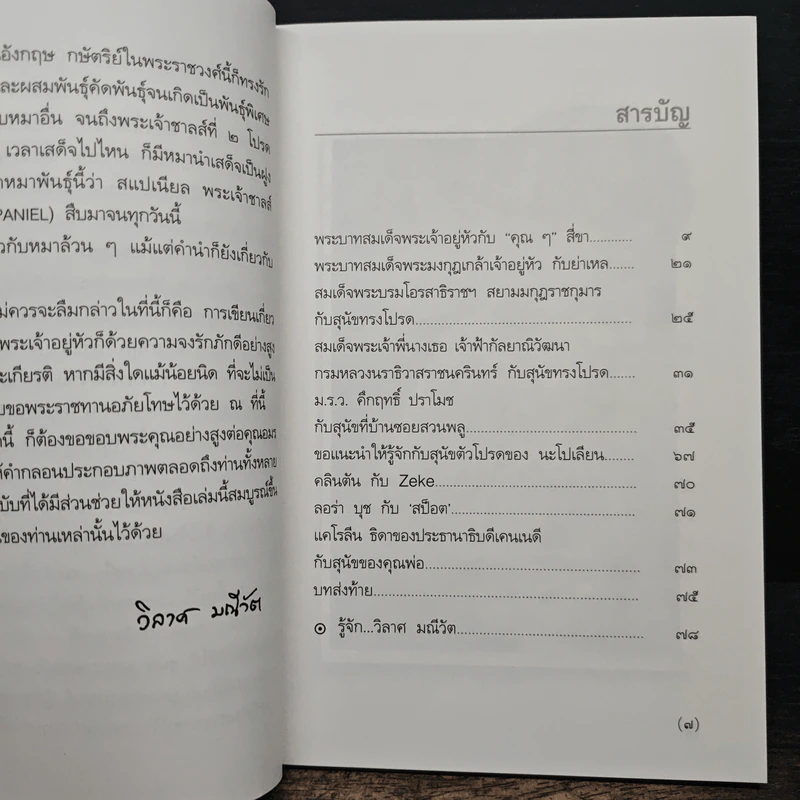 อังกฤษ กษัตริย์ในพระราชวงศ์นี้ก็ทรงรัก
ละผสมพันธุ์คัดพันธุ์จนเกิดเป็นพันธุ์พิเศษ
บหมาอื่น จนถึงพระเจ้าชาลส์ที่ ๒ โปรด
เวลาเสด็จไปไหน ก็มีหมานำเสด็จเป็นฝูง
หมาพันธุ์นี้ว่า สแปเนียล พระเจ้าชาลส์
PANIEL) สืบมาจนทุกวันนี้
วกับหมาล้วน ๆ แม้แต่คำนำก็ยังเกี่ยวกับ
ม่ควรจะลืมกล่าวในที่นี้ก็คือ การเขียนเกี่ยว
พระเจ้าอยู่หัวก็ด้วยความจงรักภักดีอย่างสูง
ะเกียรติ หากมีสิ่งใดแม้น้อยนิด ที่จะไม่เป็น
บขอพระราชทานอภัยโทษไว้ด้วย ณ ที่นี้
นี้ ก็ต้องขอขอบพระคุณอย่างสูงต่อคุณอมร
ห้คำกลอนประกอบภาพตลอดถึงท่านทั้งหลาย
บับที่ได้มีส่วนช่วยให้หนังสือเล่มนี้สมบูรณ์ขึ้น
นของท่านเหล่านั้นไว้ด้วย
วิลาศ มณีวัต
สารบัญ
พระบาทสมเด็จพระเจ้าอยู่หัวกับ “คุณ ๆ” สี่ขา............ ๙
พระบาทสมเด็จพระมงกุฎเกล้าเจ้าอยู่หัว กับย่าเหล....... ๒๑
สมเด็จพระบรมโอรสาธิราชฯ สยามมกุฎราชกุมาร
กับสุนัขทรงโปรด............ ๒๕
สมเด็จพระเจ้าพี่นางเธอ เจ้าฟ้ากัลยาณิวัฒนา
กรมหลวงนราธิวาสราชนครินทร์ กับสุนัขทรงโปรด....... ๓๑
ม.ร.ว. คึกฤทธิ์ ปราโมช
กับสุนัขที่บ้านซอยสวนพลู............ ๓๕
ขอแนะนำให้รู้จักกับสุนัขตัวโปรดของ นะโปเลียน....... ๖๗
คลินตัน กับ Zeke............ ๗๐
ลอร่า บุช กับ ‘สป็อต’............ ๗๑
แคโรลีน ธิดาของประธานาธิบดีเคนเนดี
กับสุนัขของคุณพ่อ............ ๗๓
บทส่งท้าย............ ๗๕
⊙ รู้จัก...วิลาศ มณีวัต............ ๗๘
(๗)